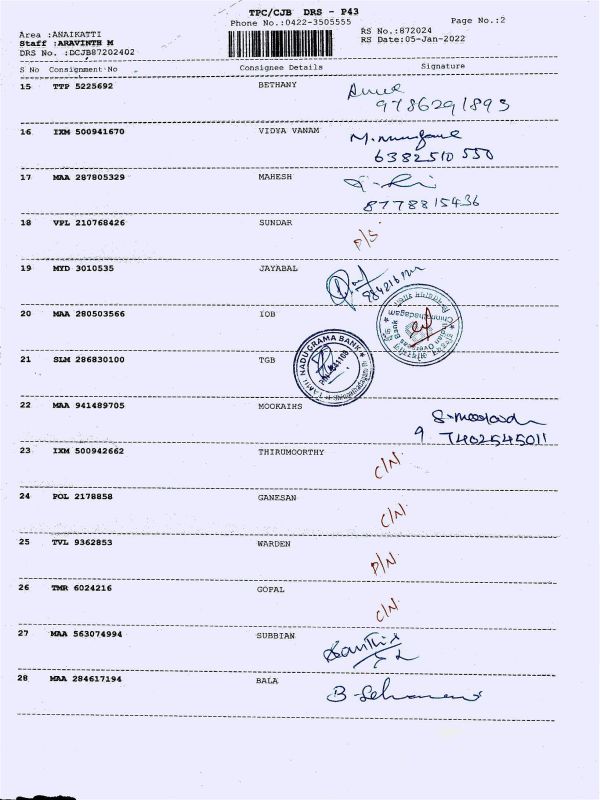 TPC/CJB DRS - P43
Phone No.:0422-3505555
Page No.:2
Area :ANAIKATTI
Staff :ARAVINTH M
DRS No. :DCJB87202402
RS No.:872024
RS Date:05-Jan-2022
S No Consignment No Consignee Details Signature
15 TTP 5225692 BETHANY
9786291893
16 IXM 500941670 VIDYA VANAM
6382510 550
17 MAA 287805329 MAHESH
8778815436
18 VPL 210768426 SUNDAR P/S
19 MYD 3010535 JAYABAL
20 MAA 280503566 IOB
Indian Overseas Bank
Chinnathadagam
21 SLM 286830100 TGB
TAMIL NADU GRAMA BANK
22 MAA 941489705 MOOKAIHS
9 7402545011
23 IXM 500942662 THIRUMOORTHY C/N
24 POL 2178858 GANESAN C/N
25 TVL 9362853 WARDEN P/N
26 TMR 6024216 GOPAL C/N
27 MAA 563074994 SUBBIAN
28 MAA 284617194 BALA